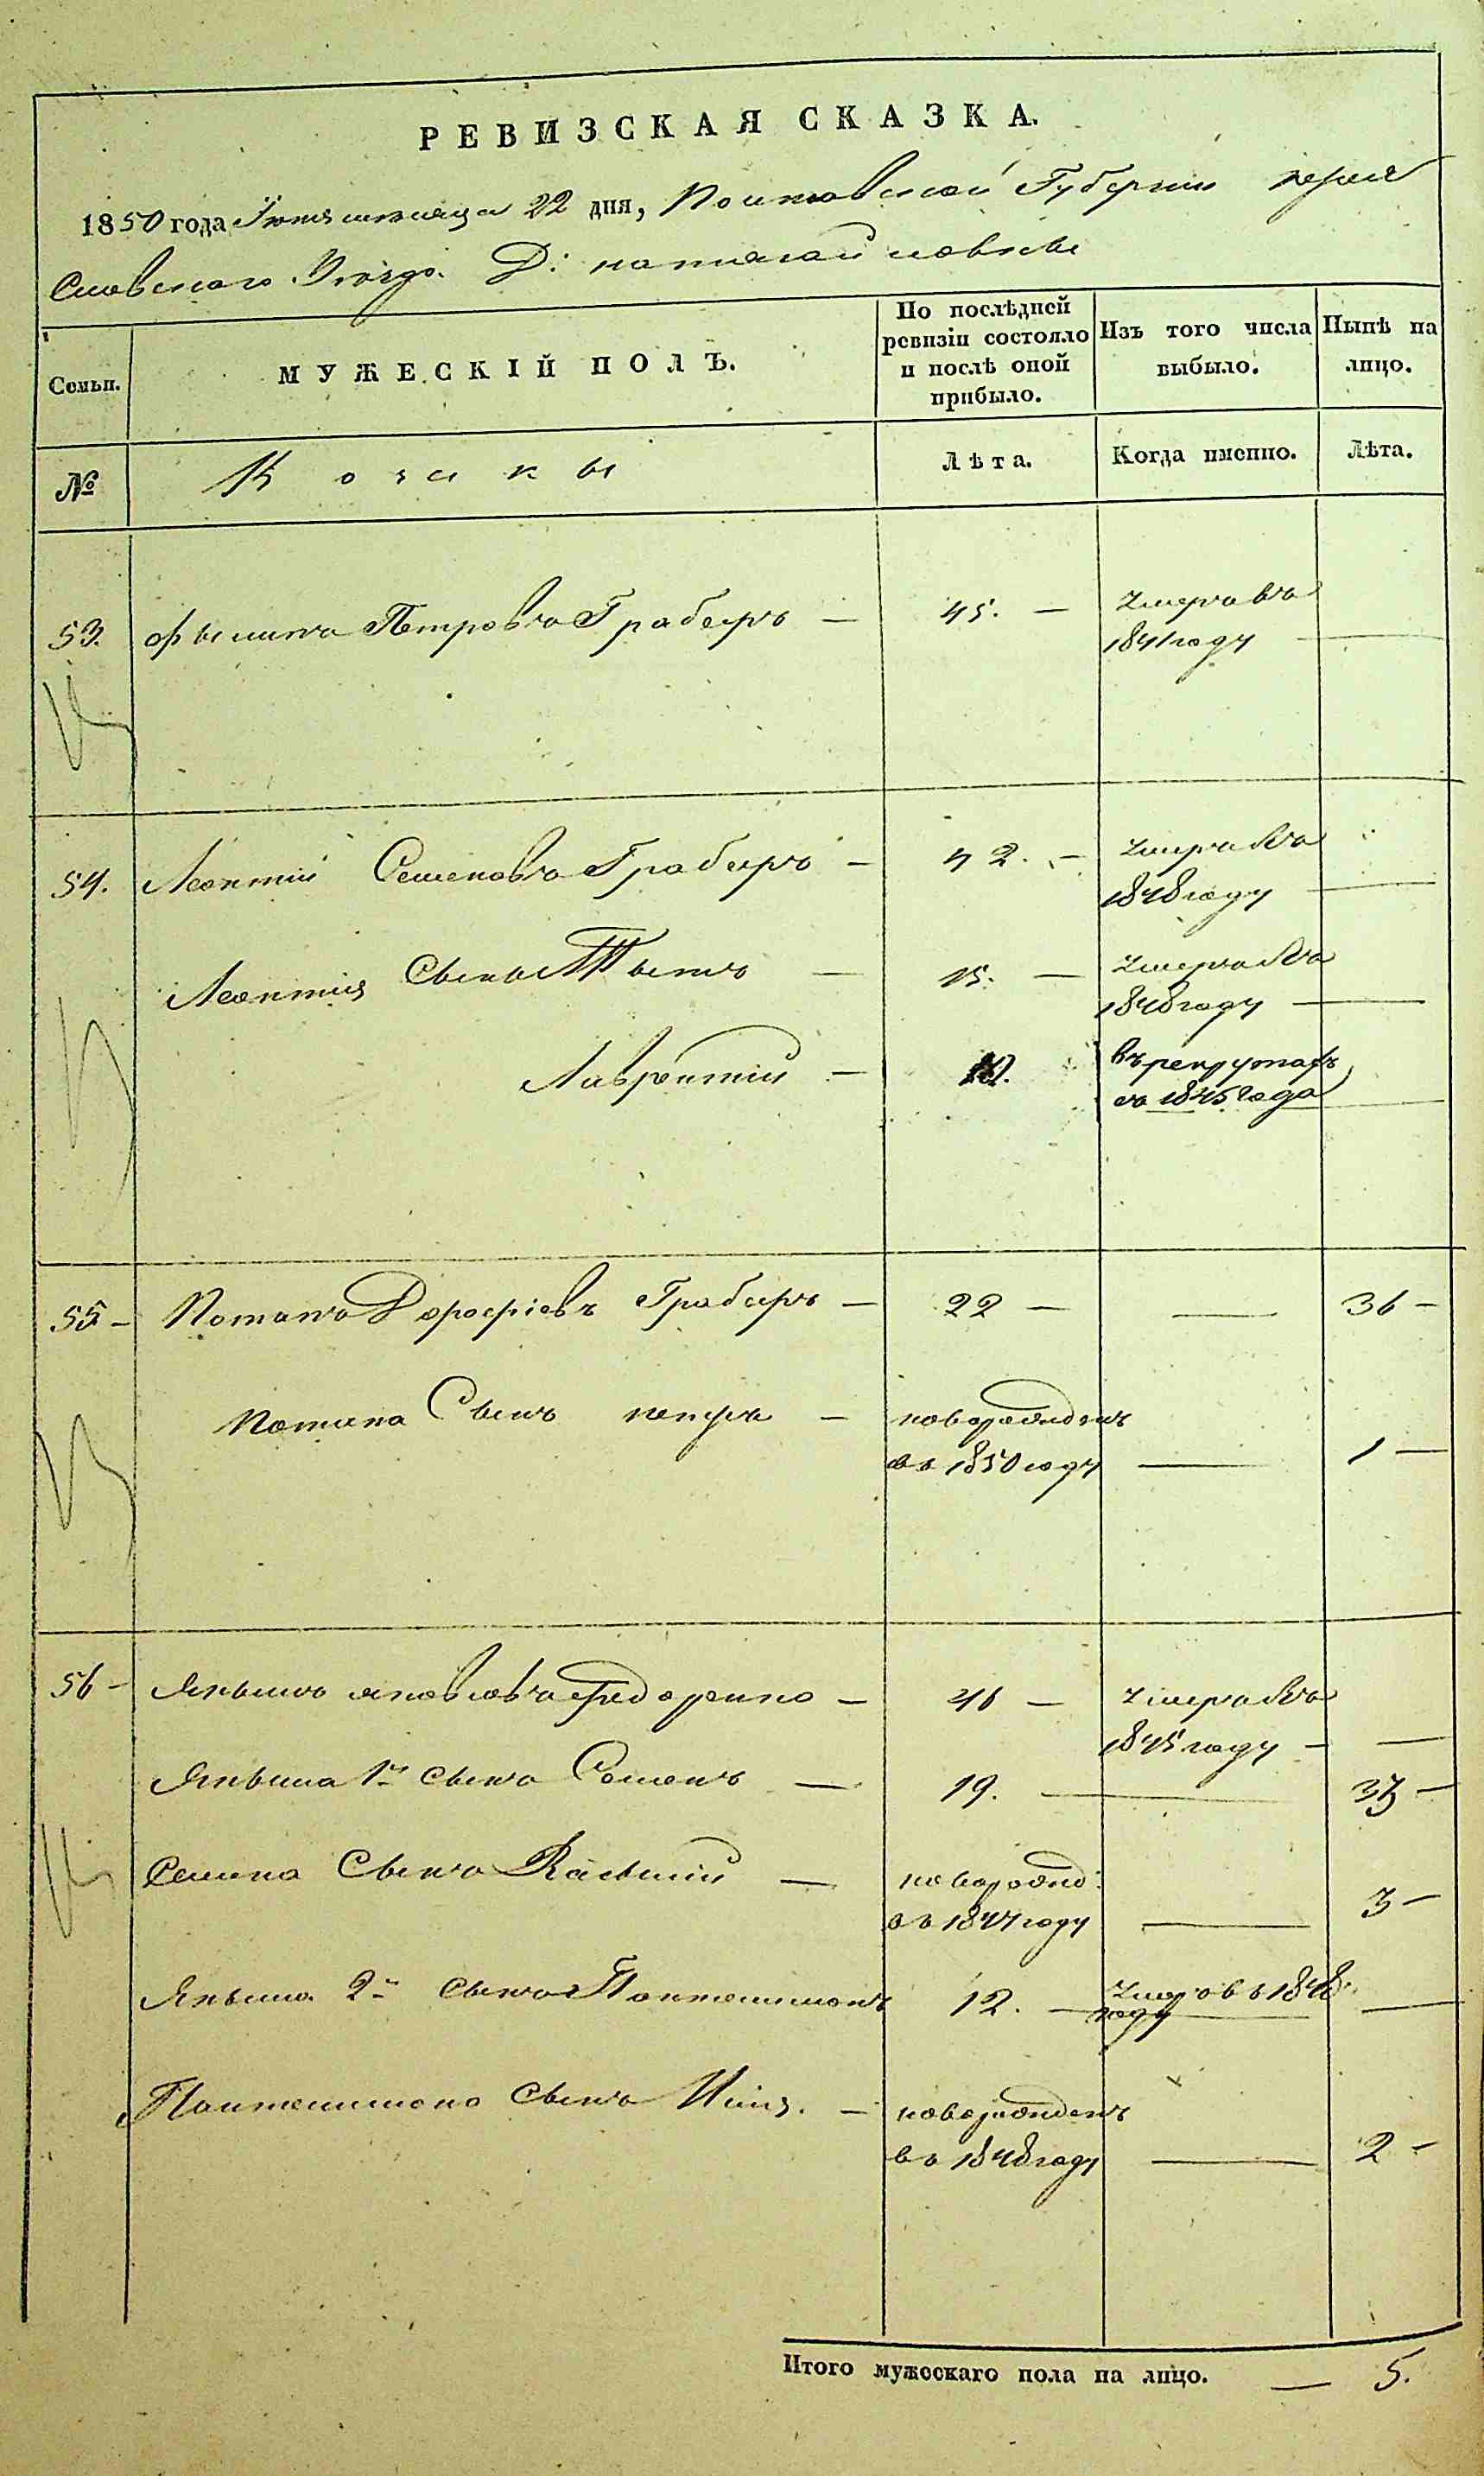 РЕВИЗСКАЯ СКАЗКА.
1850 года Іюня мѣсяца 22 дня, Полтавской Губерніи перея
славского Уѣзда. Д:
Семьи.
МУЖЕСКІЙ ПОЛЪ.
По послѣдней ревизіи состояло и послѣ оной прибыло.
Изъ того числа выбыло.
Нынѣ на лицо.
№
Козаки
Лѣта.
Когда именно.
Лѣта.
53. Филипъ Петровъ Граберъ — 45. — Умеръ въ
1841 году —
54. Леонтій Семеновъ Граберъ — 42. — Умеръ въ
1848 году —
Леонтія Сынъ Титъ — 15. — Умеръ въ
1848 году —
Лаврентій — въ рекрутахъ
съ 1845 года
55 — Потапъ Дорофіевъ Граберъ — 22 — — 36 —
Потапа Сынъ петръ — новорожденъ
въ 1850 году — 1 —
56 — Якимъ яковлевъ Федоренко — 46 — Умеръ въ
1845 году — —
Якима 1й сынъ Семенъ — 19. — —
Семена Сынъ Василій — новорожд:
въ 1847 году — 3 —
Якима 2й сынъ Пантелимонъ 12. — Умеръ въ 1848
году —
Пантелимона сынъ Илія. — новорожденъ
въ 1848 году — 2 —
Итого мужескаго пола на лицо. — 5.